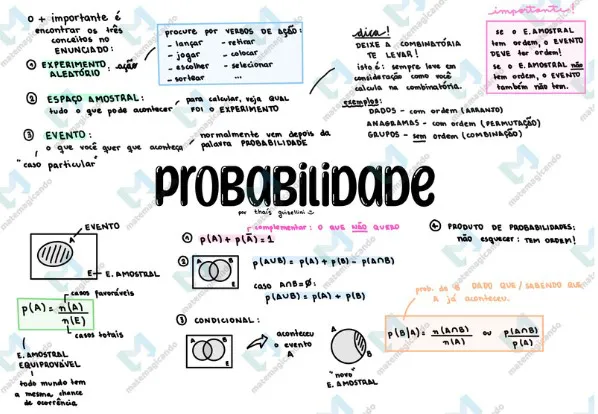 o + importante é
encontrar os três
conceitos no
ENUNCIADO:
① EXPERIMENTO: ação
ALEATÓRIO
procure por VERBOS DE AÇÃO:
- lançar - retirar
- jogar - colocar
- escolher - selecionar
- sortear ...
② ESPAÇO AMOSTRAL:
tudo o que pode acontecer
para calcular, veja QUAL
FOI O EXPERIMENTO
③ EVENTO:
o que você quer que aconteça
"caso particular"
normalmente vem depois da
palavra PROBABILIDADE
dica!
DEIXE A COMBINATÓRIA
TE LEVAR!
isto é: sempre leve em
consideração como você
calcula na combinatória.
exemplos:
DADOS - com ordem (ARRANJO)
ANAGRAMAS - com ordem (PERMUTAÇÃO)
GRUPOS - sem ordem (COMBINAÇÃO)
importante!
se o E. AMOSTRAL
tem ordem, o EVENTO
DEVE ter ordem!
se o E. AMOSTRAL não
tem ordem, o EVENTO
também não tem.
PROBABILIDADE
por thaís guisellini
EVENTO
A
E
E. AMOSTRAL
casos favoráveis
P(A) = n(A)
n(E)
casos totais
E. AMOSTRAL
EQUIPROVÁVEL
todo mundo tem
a mesma chance
de ocorrência
complementar: O QUE NÃO QUERO
① P(A) + P(Ā) = 1
②
A B
P(A∪B) = P(A) + P(B) - P(A∩B)
caso A∩B = ø:
P(A∪B) = P(A) + P(B)
③ CONDICIONAL:
A B
aconteceu
o evento
A
A
B
"novo"
E. AMOSTRAL
④ PRODUTO DE PROBABILIDADES:
não esquecer: TEM ORDEM!
prob. de B DADO QUE / SABENDO QUE
A já aconteceu.
P(B|A) = n(A∩B) ou P(A∩B)
n(A) P(A)
matemagicando